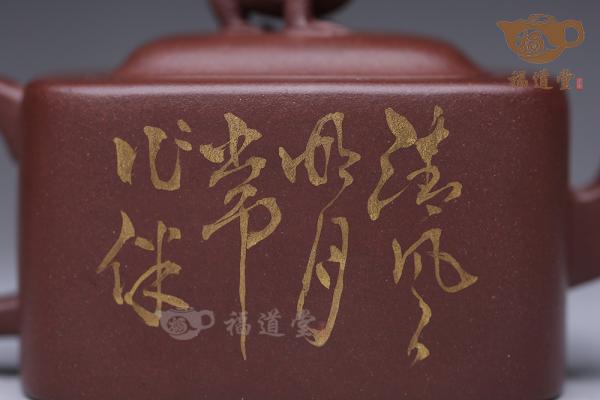 清风
明月
常
作伴
福道堂
福道堂